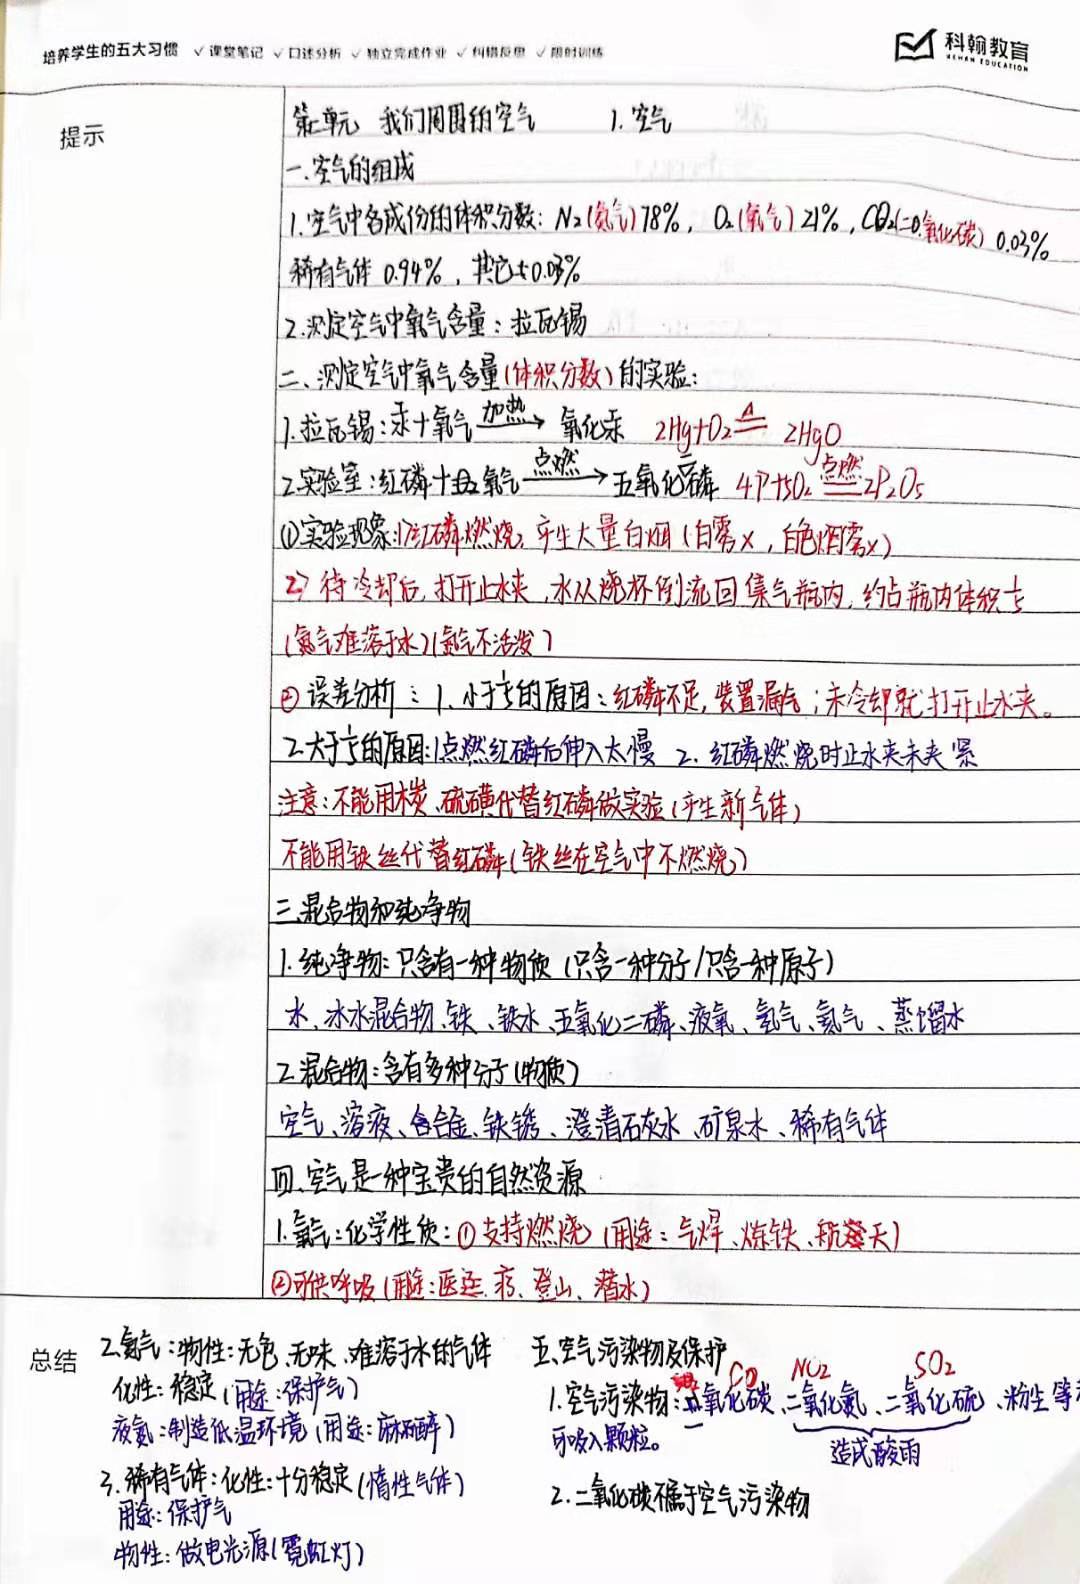 培养学生的五大习惯 ✓课堂笔记 ✓口述分析 ✓独立完成作业 ✓纠错反思 ✓限时训练
科翰教育
KEHAN EDUCATION
提示
第二单元 我们周围的空气 1.空气
一.空气的组成
1.空气中各成份的体积分数: N₂(氮气)78%, O₂(氧气)21%, CO₂(二氧化碳) 0.03%
稀有气体 0.94%, 其它 0.03%
2.测定空气中氧气含量: 拉瓦锡
二、测定空气中氧气含量(体积分数)的实验:
1.拉瓦锡:汞+氧气 加热→ 氧化汞 2Hg+O₂ △═ 2HgO
2.实验室:红磷+氧气 点燃→ 五氧化二磷 4P+5O₂ 点燃═ 2P₂O₅
①实验现象:1)红磷燃烧,产生大量白烟(白雾×,白色烟雾×)
2)待冷却后,打开止水夹,水从烧杯倒流回集气瓶内,约占瓶内体积1/5
(氮气难溶于水)(氮气不活泼)
②误差分析:1.小于1/5的原因:红磷不足,装置漏气;未冷却就打开止水夹。
2.大于1/5的原因:1点燃红磷后伸入太慢 2.红磷燃烧时止水夹未夹紧
注意:不能用木炭、硫磺代替红磷做实验(产生新气体)
不能用铁丝代替红磷(铁丝在空气中不燃烧)
三.混合物和纯净物
1.纯净物:只含有一种物质(只含一种分子/只含一种原子)
水、冰水混合物、铁、铁水、五氧化二磷、液氧、氢气、氮气、蒸馏水
2.混合物:含有多种分子(物质)
空气、溶液、合金、铁锈、澄清石灰水、矿泉水、稀有气体
四.空气是一种宝贵的自然资源
1.氧气:化学性质:①支持燃烧(用途:气焊、炼铁、航天)
②可供呼吸(用途:医疗、登山、潜水)
总结
2.氮气:物性:无色、无味、难溶于水的气体
化性:稳定(用途:保护气)
液氮:制造低温环境(用途:麻醉)
3.稀有气体:化性:十分稳定(惰性气体)
用途:保护气
物性:做电光源(霓虹灯)
五.空气污染物及保护
CO NO₂ SO₂
1.空气污染物:一氧化碳、二氧化氮、二氧化硫、粉尘等
可吸入颗粒。
造成酸雨
2.二氧化碳不属于空气污染物